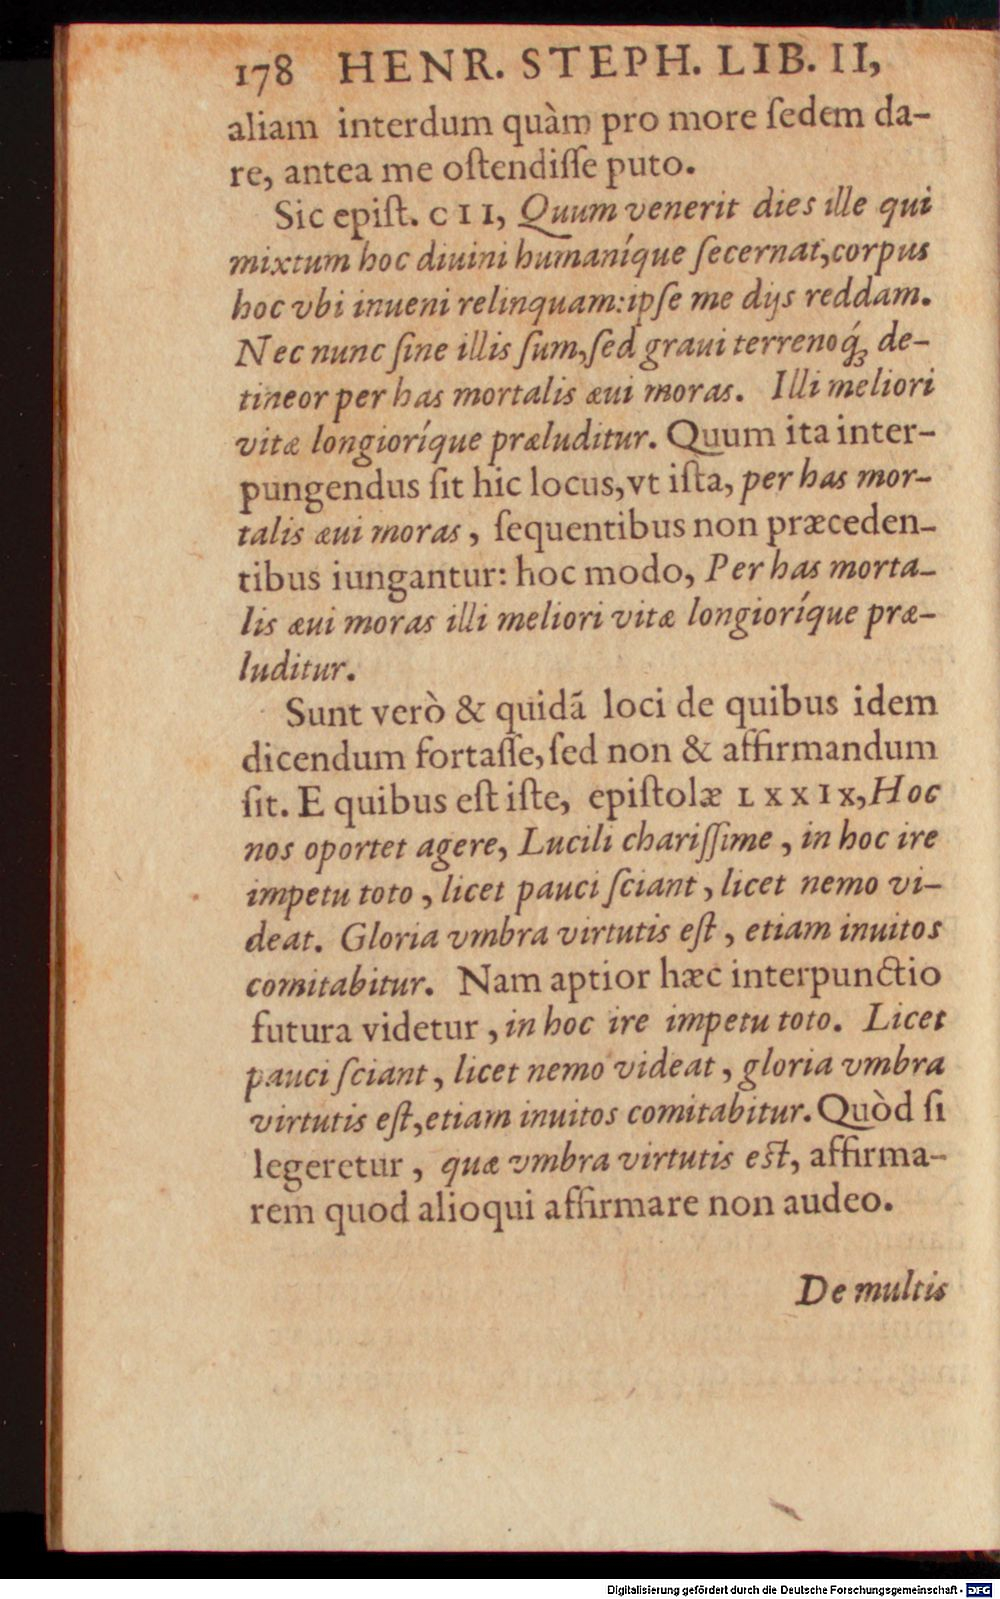 178 HENR. STEPH. LIB. II,
aliam interdum quàm pro more ſedem da-
re, antea me oſtendiſſe puto.
Sic epiſt. CII, Quum venerit dies ille qui
mixtum hoc diuini humaníque ſecernat, corpus
hoc vbi inueni relinquam: ipſe me dijs reddam.
Nec nunc ſine illis ſum, ſed graui terrenoq́; de-
tineor per has mortalis æui moras. Illi meliori
vitæ longioríque præluditur. Quum ita inter-
pungendus ſit hic locus, vt iſta, per has mor-
talis æui moras, ſequentibus non præceden-
tibus iungantur: hoc modo, Per has morta-
lis æui moras illi meliori vitæ longioríque præ-
luditur.
Sunt verò & quidã loci de quibus idem
dicendum fortaſſe, ſed non & affirmandum
ſit. E quibus eſt iſte, epiſtolæ LXXIX, Hoc
nos oportet agere, Lucili chariſſime, in hoc ire
impetu toto, licet pauci ſciant, licet nemo vi-
deat. Gloria vmbra virtutis eſt, etiam inuitos
comitabitur. Nam aptior hæc interpunctio
futura videtur, in hoc ire impetu toto. Licet
pauci ſciant, licet nemo videat, gloria vmbra
virtutis eſt, etiam inuitos comitabitur. Quòd ſi
legeretur, quæ vmbra virtutis eſt, affirma-
rem quod alioqui affirmare non audeo.
De multis
Digitalisierung gefördert durch die Deutsche Forschungsgemeinschaft - DFG